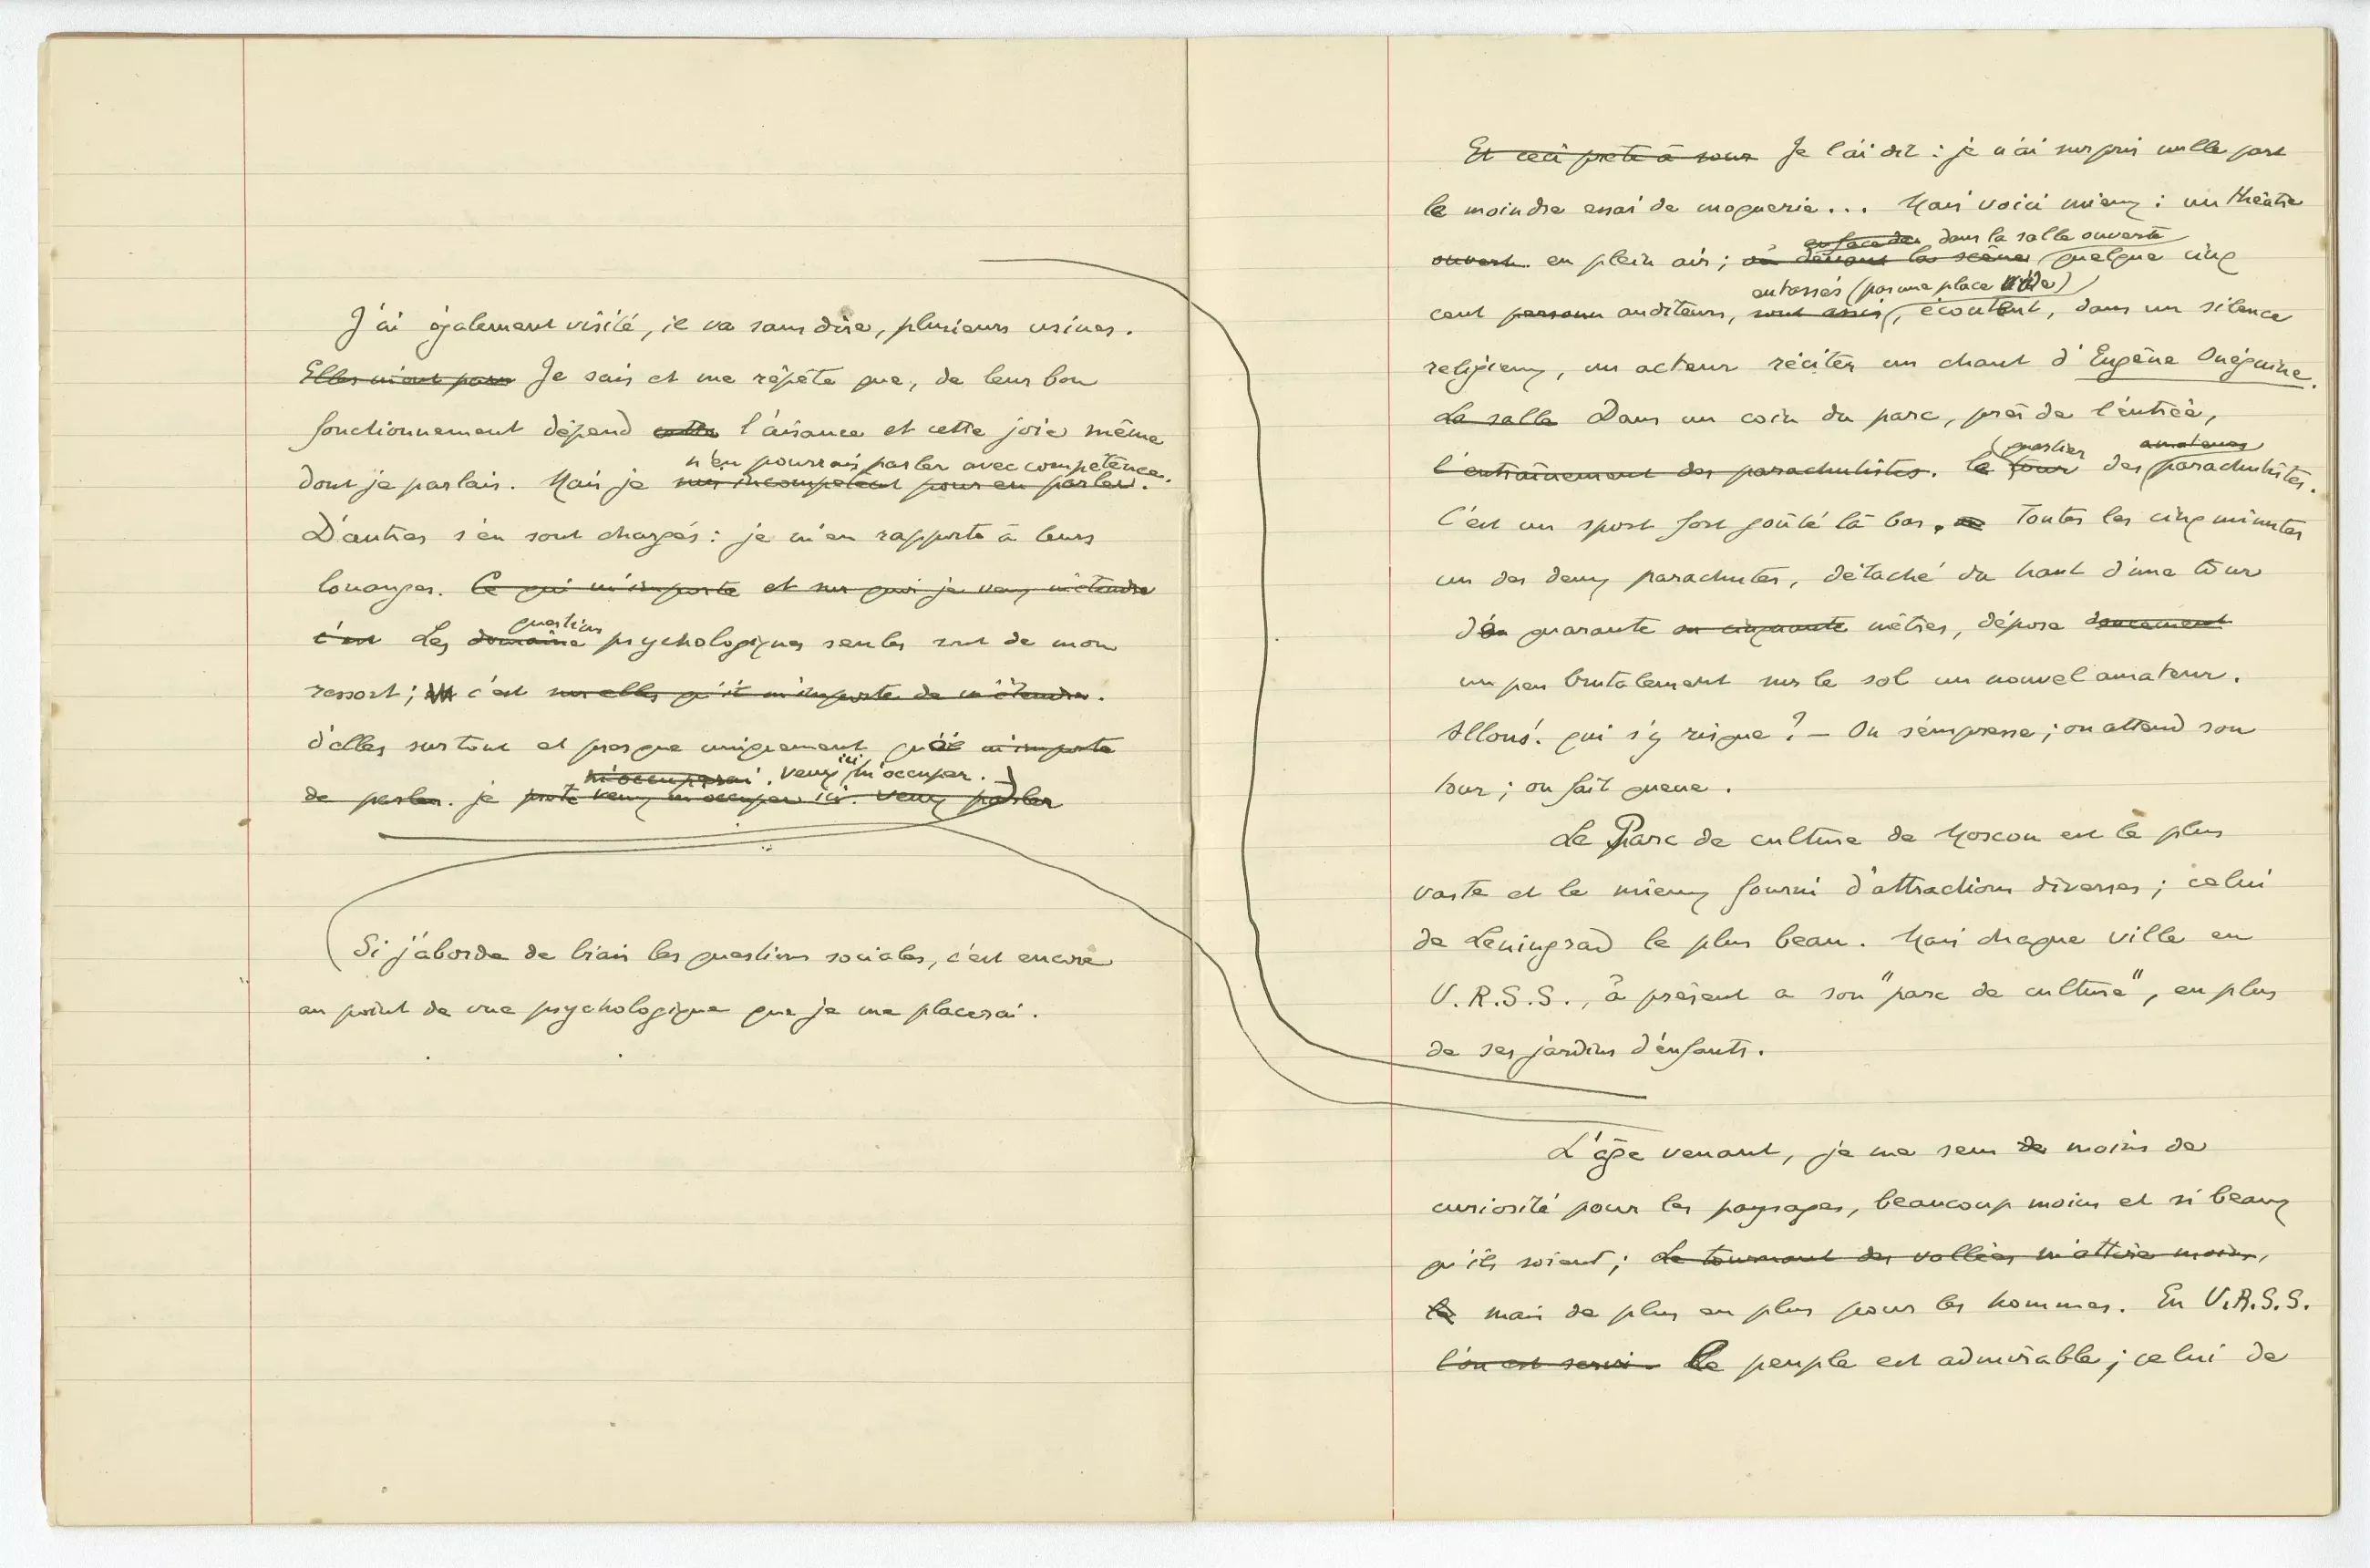 J'ai également visité, il va sans dire, plusieurs usines.
Elles m'ont paru Je sais et me répète que, de leur bon
fonctionnement dépend cette l'aisance et cette joie même
n'en pourrais parler avec compétence.
dont je parlais. Mais je suis incompétent pour en parler.
D'autres s'en sont chargés : je m'en rapporte à leurs
louanges. Ce qui m'importe et sur quoi je veux m'étendre
questions
c'est Les domaine psychologiques seules sont de mon
ressort ; c'est sur elles qu'il m'importe de m'étendre.
d'elles surtout et presque uniquement qu'il m'importe
m'occuperai. veux ici m'occuper.
de parler. je veux m'occuper ici. veux parler
Si j'aborde de biais les questions sociales, c'est encore
au point de vue psychologique que je me placerai.
Et ceci prête à Je l'ai dit : je n'ai surpris nulle part
le moindre essai de moquerie... Mais voici mieux : un théâtre
en face de dans la salle ouverte
ouvert en plein air ; où devant la scène quelque cinq
entassés (pas une place vide)
cent personn auditeurs, sont assis, écoutent, dans un silence
religieux, un acteur réciter un chant d'Eugène Onéguine.
La salle Dans un coin du parc, près de l'entrée,
quartier amateurs
l'entraînement des parachutistes. le tour des parachutistes.
C'est un sport fort goûté là bas. Toutes les cinq minutes
un des deux parachutes, détaché du haut d'une tour
de quarante ou cinquante mètres, dépose doucement
un peu brutalement sur le sol un nouvel amateur.
Allons! qui s'y risque ? — On s'empresse ; on attend son
tour ; on fait queue.
Le Parc de culture de Moscou est le plus
vaste et le mieux fourni d'attractions diverses ; celui
de Leningrad le plus beau. Mais chaque ville en
U.R.S.S., à présent a son "parc de culture", en plus
de ses jardins d'enfants.
L'âge venant, je me sens de moins de
curiosité pour les paysages, beaucoup moins et si beaux
qu'ils soient ; Le tournant des vallées m'attire moins,
le mais de plus en plus pour les hommes. En U.R.S.S.
l'on est servi. le peuple est admirable ; celui de